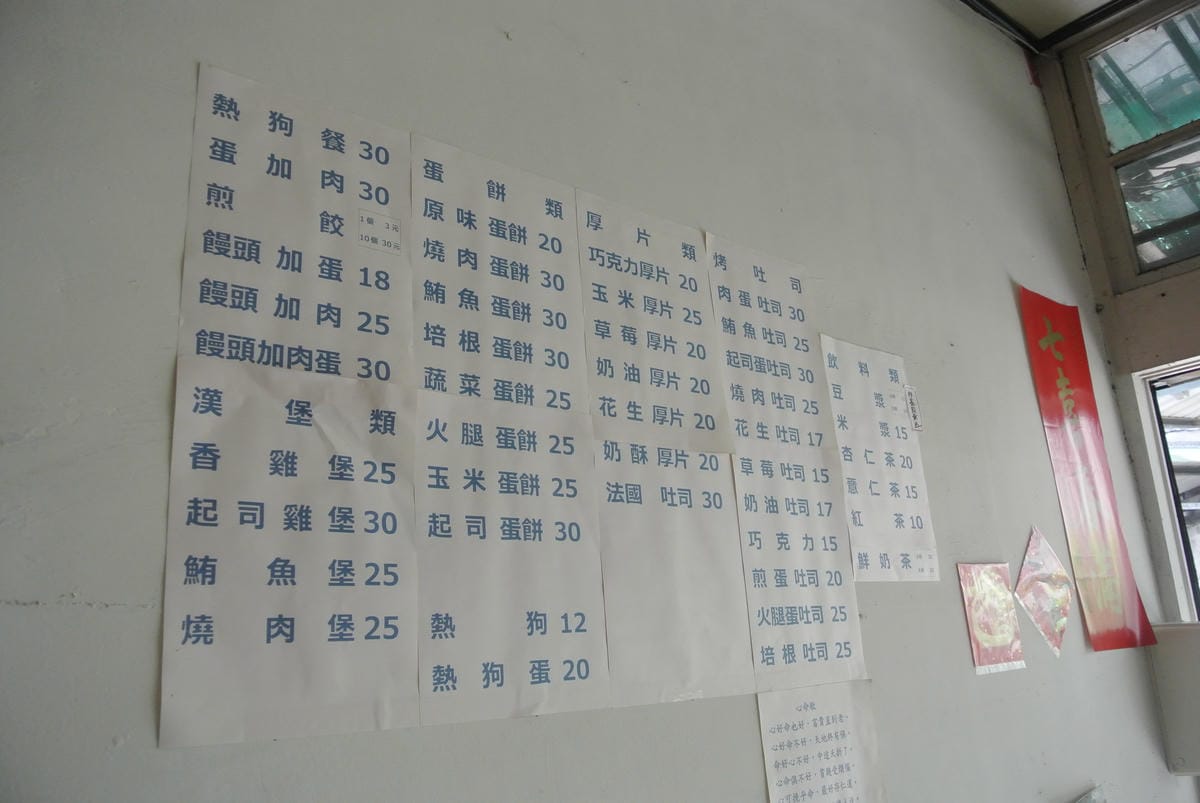 熱狗餐 30
蛋加肉 30
煎餃 1個 3元
10個 30元
饅頭加蛋 18
饅頭加肉 25
饅頭加肉蛋 30
漢堡類
香雞堡 25
起司雞堡 30
鮪魚堡 25
燒肉堡 25
蛋餅類
原味蛋餅 20
燒肉蛋餅 30
鮪魚蛋餅 30
培根蛋餅 30
蔬菜蛋餅 25
火腿蛋餅 25
玉米蛋餅 25
起司蛋餅 30
熱狗 12
熱狗蛋 20
厚片類
巧克力厚片 20
玉米厚片 25
草莓厚片 20
奶油厚片 20
花生厚片 20
奶酥厚片 20
法國吐司 30
烤吐司
肉蛋吐司 30
鮪魚吐司 25
起司蛋吐司 30
燒肉吐司 25
花生吐司 17
草莓吐司 15
奶油吐司 17
巧克力 15
煎蛋吐司 20
火腿蛋吐司 25
培根吐司 25
飲料類
豆漿
米漿 15
杏仁茶 20
薏仁茶 15
紅茶 10
鮮奶茶
心命歌
心好命也好，富貴直到老。
心好命不好，天地終有保。
命好心不好，中途夭折了。
心命俱不好，貧賤受煩惱。
心可挽乎命，最好存仁道。
七吉